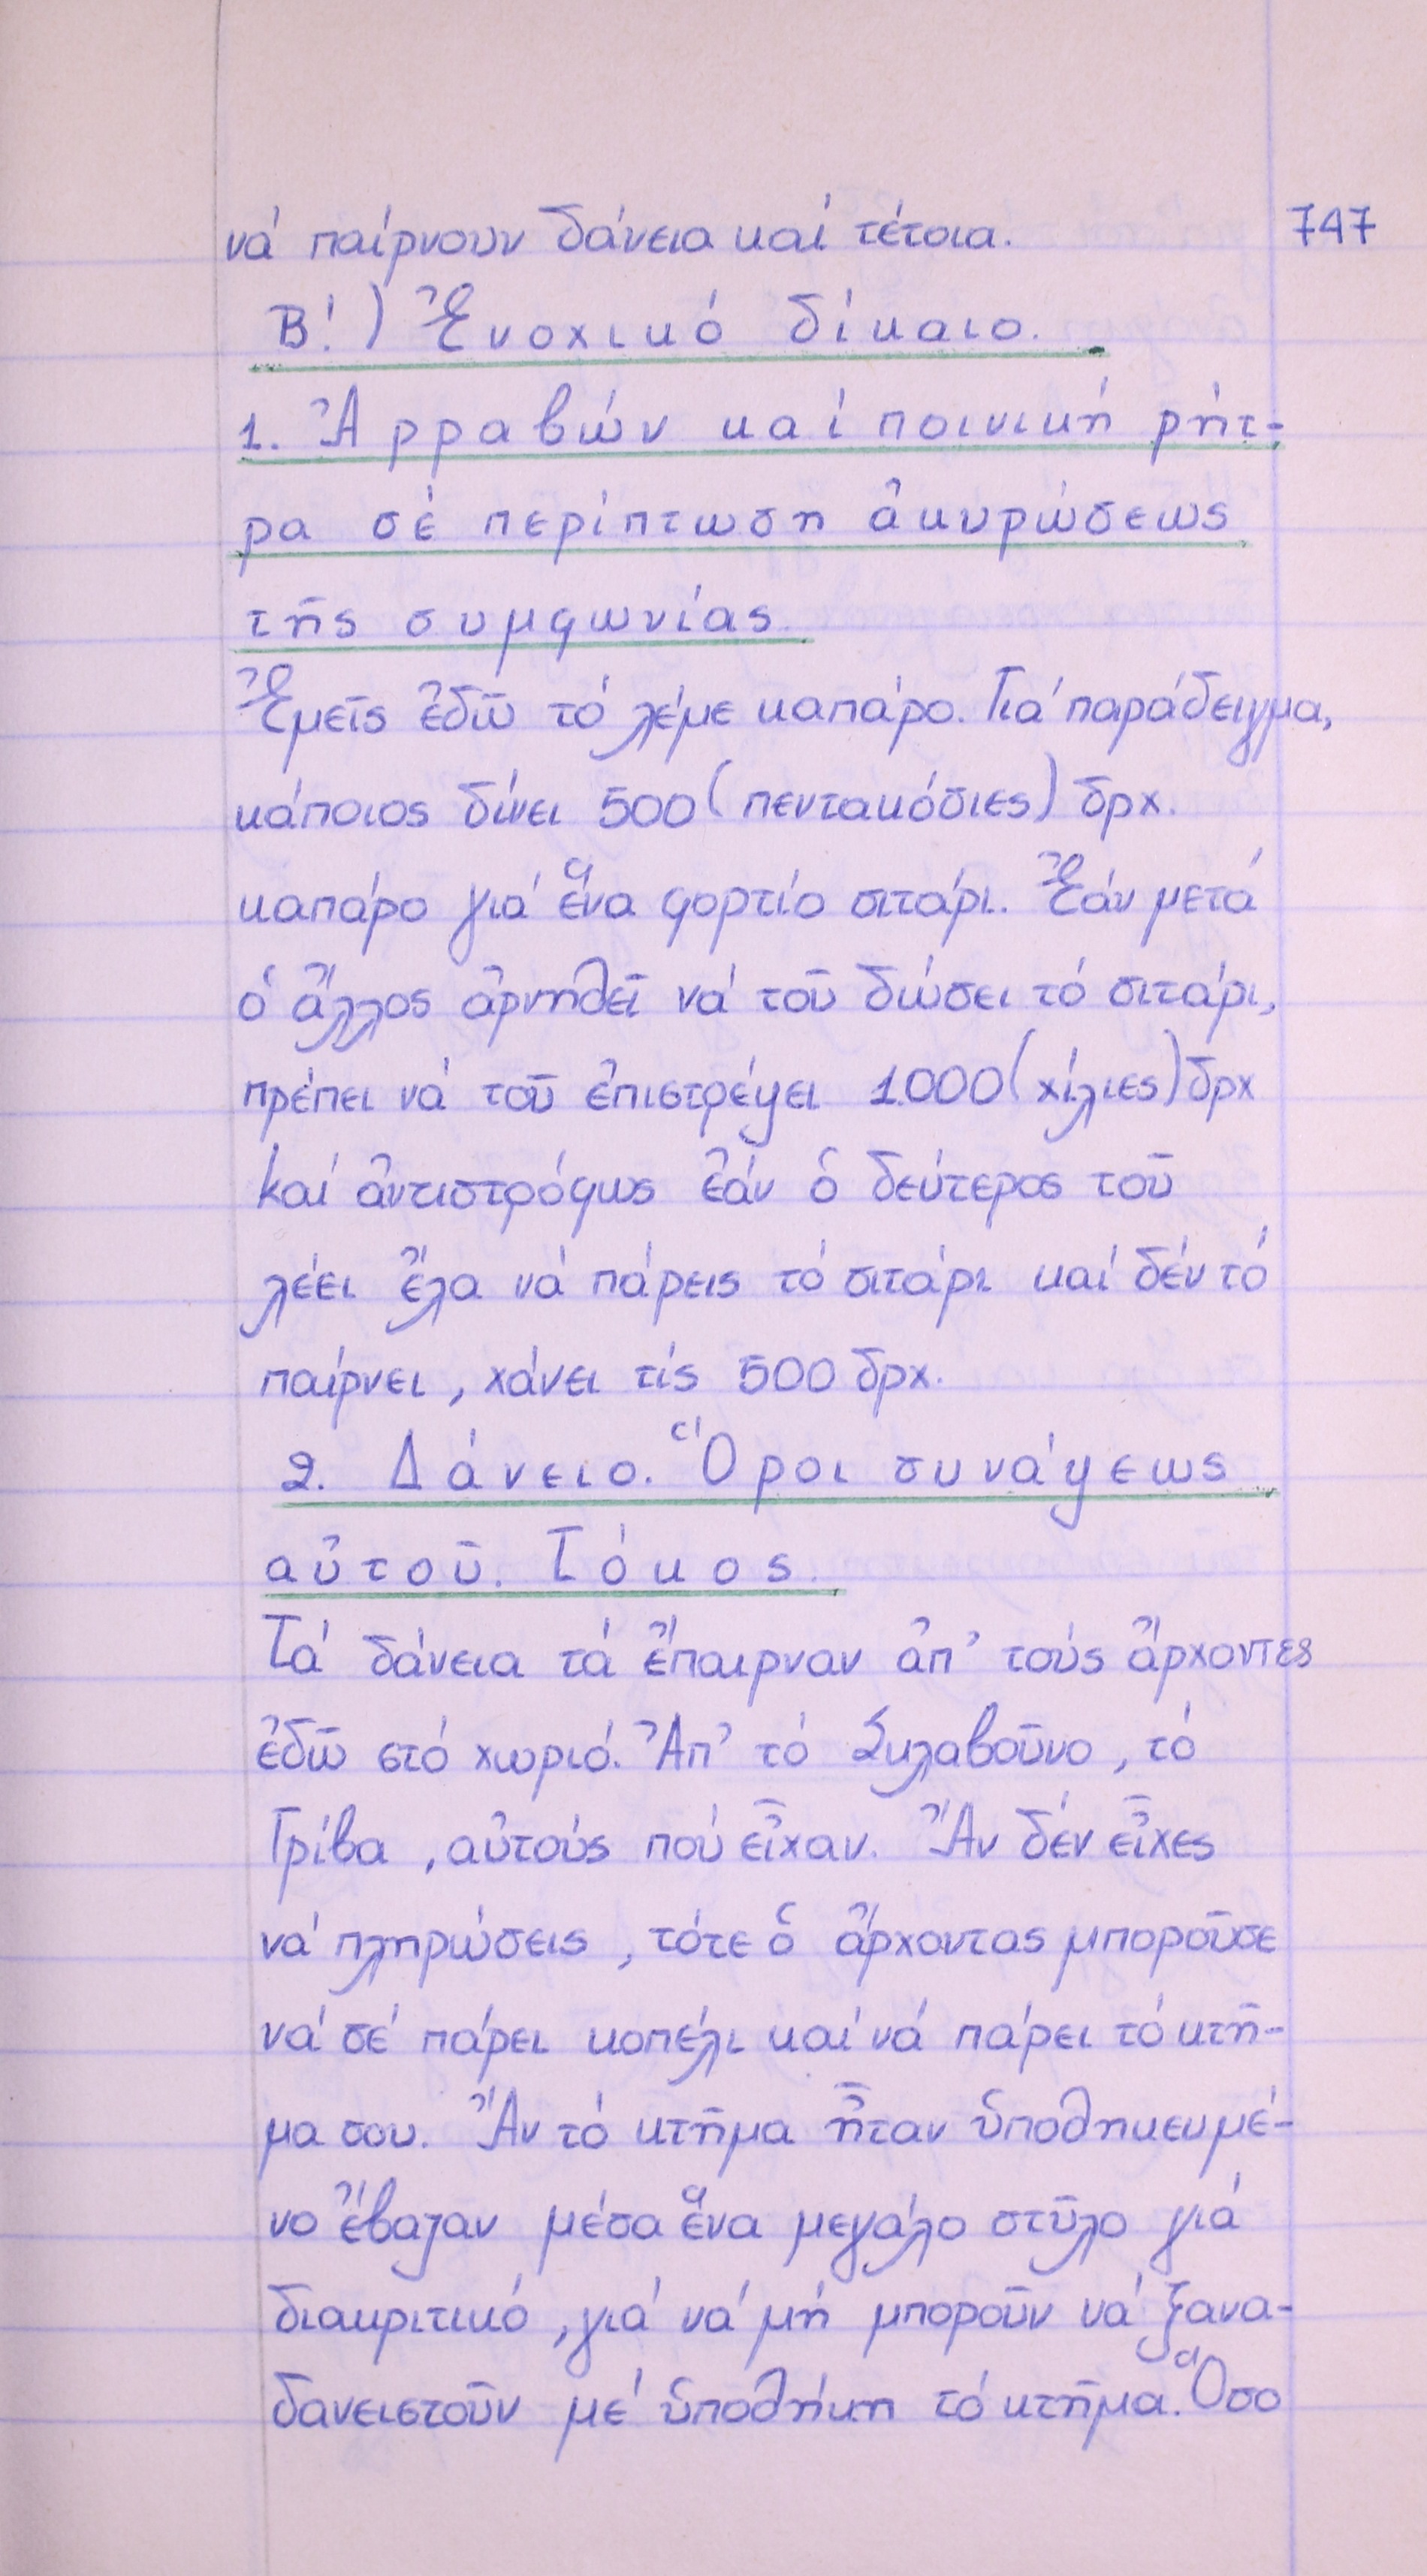 νά παίρνουν δάνεια καί τέτοια. 747
Β!) Ἐνοχικό δίκαιο.
1. Ἀρραβών καί ποινική ρήτ-
ρα σέ περίπτωση ἀκυρώσεως
τῆς συμφωνίας.
Ἐμεῖς ἐδῶ τό λέμε καπάρο. Γιά παράδειγμα,
κάποιος δίνει 500 (πεντακόσιες) δρχ.
καπάρο γιά ἕνα φορτίο σιτάρι. Ἐάν μετά
ὁ ἄλλος ἀρνηθεῖ νά τοῦ δώσει τό σιτάρι,
πρέπει νά τοῦ ἐπιστρέψει 1.000 (χίλιες) δρχ
καί ἀντιστρόφως ἐάν ὁ δεύτερος τοῦ
λέει ἔλα νά πάρεις τό σιτάρι καί δέν τό
παίρνει, χάνει τίς 500 δρχ.
2. Δάνειο. Ὅροι συνάψεως
αὐτοῦ. Τόκος.
Τά δάνεια τά ἔπαιρναν ἀπ' τούς ἄρχοντες
ἐδῶ στό χωριό. Ἀπ' τό Σκλαβοῦνο, τό
Γρίβα, αὐτούς πού εἶχαν. Ἄν δέν εἶχες
νά πληρώσεις, τότε ὁ ἄρχοντας μποροῦσε
νά σέ πάρει κοπέλι καί νά πάρει τό κτῆ-
μα σου. Ἄν τό κτῆμα ἦταν ὑποθηκευμέ-
νο ἔβαζαν μέσα ἕνα μεγάλο στῦλο γιά
διακριτικό, γιά νά μή μποροῦν νά ξανα-
δανειστοῦν μέ ὑποθήκη τό κτῆμα. Ὅσο